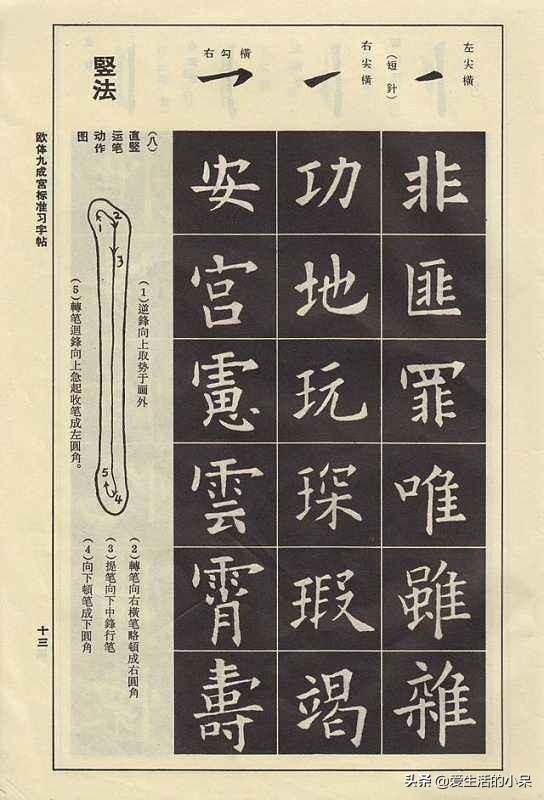 左尖橫
（短針）
右尖橫
右勾橫
非匪罪唯雖雜
功地玩琛瑕竭
安宮憲雲霄壽
竪法
（八）
直竪
运笔
动作
图
1
2
3
4
5
（1）逆鋒向上取勢于画外
（2）轉笔向右橫笔略頓成右圓角
（3）提笔向下中鋒行笔
（4）向下頓笔成下圓角
（5）轉笔迴鋒向上急起收笔成左圓角。
欧体九成宫标准习字帖
十三
头条 @爱生活的小呆